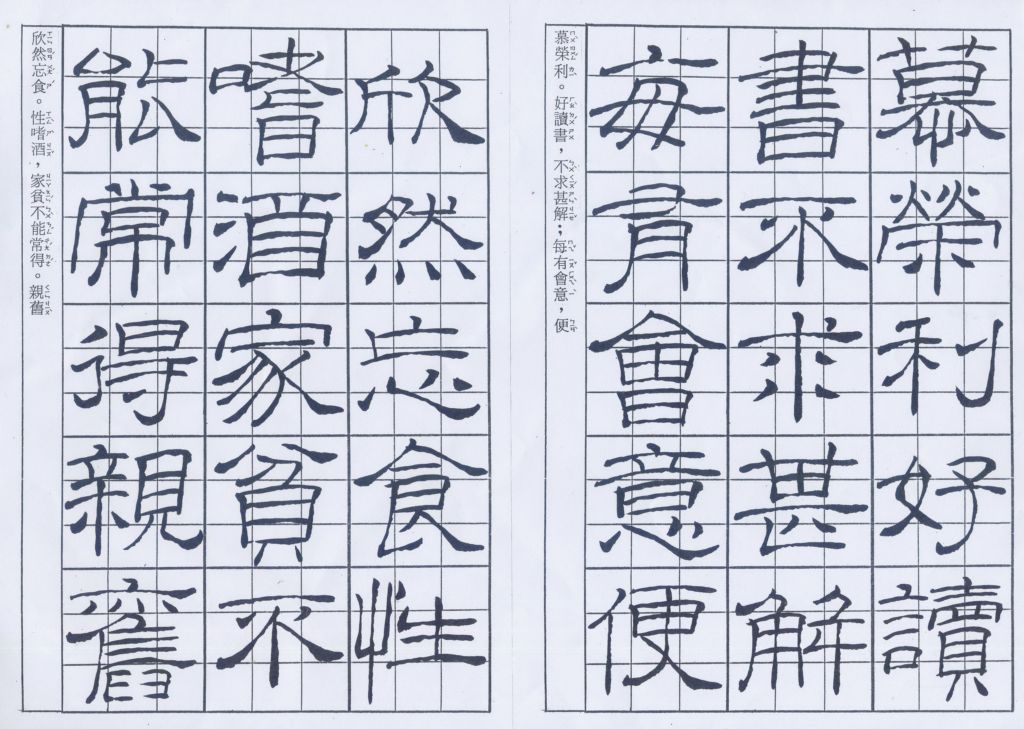 慕榮利。好讀書，不求甚解；每有會意，便
慕榮利好讀
書不求甚解
每有會意便
欣然忘食。性嗜酒，家貧不能常得。親舊
欣然忘食性
嗜酒家貧不
能常得親舊